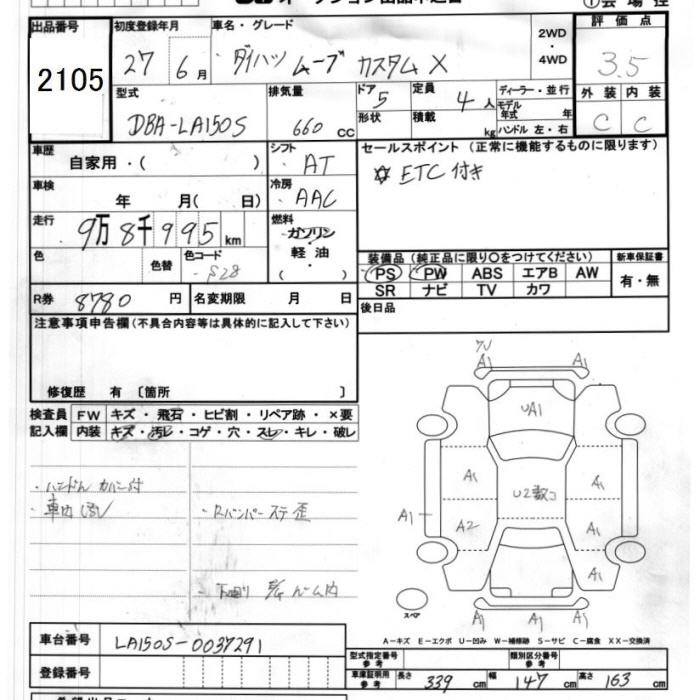 出品番号
2105
初度登録年月
27 6月
車名・グレード
ダイハツ ムーブ カスタムX
2WD
・
4WD
評価点
3.5
型式
DBA-LA150S
排気量
660 cc
ドア
5
定員
4人
形状
積載
kg
ディーラー・並行
モデル年式 年
ハンドル 左・右
外装 内装
C C
車歴
自家用・( )
シフト
AT
セールスポイント(正常に機能するものに限ります)
☆ETC付き
車検
年 月( 日)
冷房
AAC
走行
9万8千995km
燃料
ガソリン
・
軽油
・
( )
色
色替
色コード
S28
装備品(純正品に限り〇をつけてください)
PS PW ABS エアB AW
SR ナビ TV カワ
新車保証書
有・無
R券
8780円
名変期限 月 日
後日品
注意事項申告欄(不具合内容等は具体的に記入して下さい)
修復歴 有〔箇所 〕
検査員
記入欄
FW キズ・飛石・ヒビ割・リペア跡・×要
内装 キズ・汚レ・コゲ・穴・スレ・キレ・破レ
・ハンドルカバー付
・車内汚レ
・Rバンパーステ歪
A1
A1
UA1
A1
A1
A1
A2
U2数コ
A1
A1
A1
A1
A1
スペア
A-キズ E-エクボ U-凹み W-補修跡 S-サビ C-腐食 XX-交換済
車台番号
LA150S-0037291
登録番号
型式指定番号
参考
類別区分番号
参考
車庫証明用
参考
長さ 339cm
幅 147cm
高さ 163cm